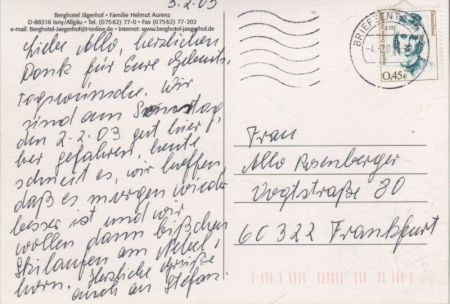 3.2.03
Berghotel Jägerhof • Familie Helmut Aurenz
D-88316 Isny/Allgäu • Tel. (07562) 77-0 • Fax (07562) 77-202
e-mail: Berghotel-Jaegerhof@t-online.de • Internet: www.berghotel-jaegerhof.de
Liebe Allo, herzlichen
Dank für Eure Geburts-
tagswünsche. Wir
sind am Sonntag,
den 2.2.03 gut hier,
her gefahren, heute
schneit es, wir hoffen,
daß es morgen wieder
besser ist und wir
wollen dann bißchen
Skilaufen am
Herzliche Grüße
auch an Stefan.
BRIEFZENTRUM
0,45€
Frau
Allo Rosenberger
Vogtstraße 80
60322 Frankfurt